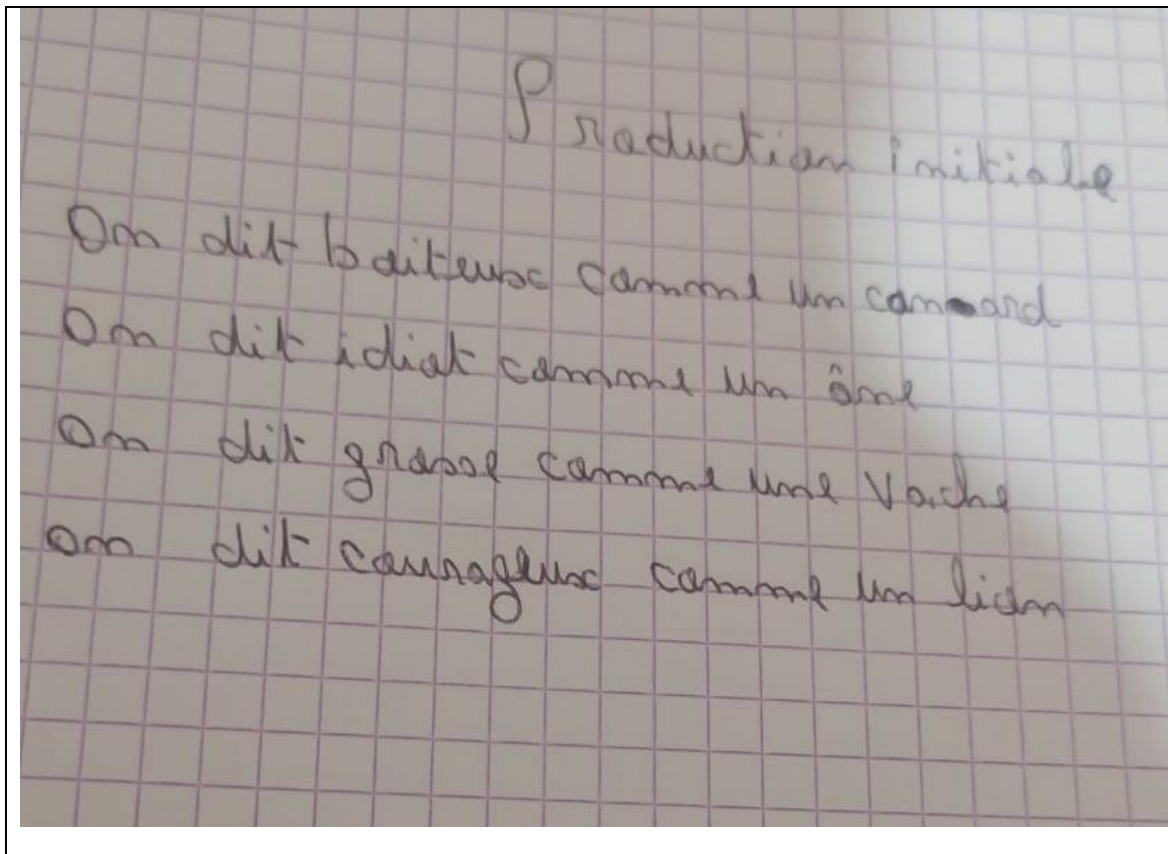 Production initiale
On dit boiteux comme un canard
On dit idiot comme un âne
On dit grasse comme une vache
On dit courageux comme un lion